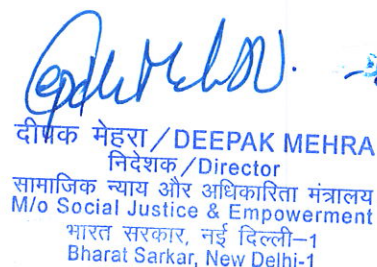 दीपक मेहरा/DEEPAK MEHRA
निदेशक/Director
सामाजिक न्याय और अधिकारिता मंत्रालय
M/o Social Justice & Empowerment
भारत सरकार, नई दिल्ली-1
Bharat Sarkar, New Delhi-1